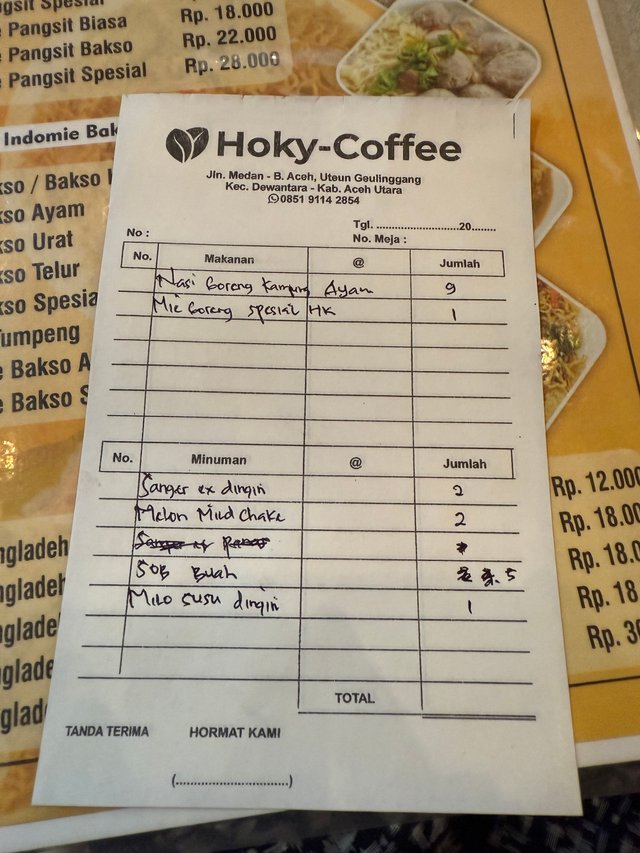 ngsit Spesial
e Pangsit Biasa Rp. 18.000
e Pangsit Bakso Rp. 22.000
e Pangsit Spesial Rp. 28.000
Indomie Bak
kso / Bakso
kso Ayam
kso Urat
kso Telur
kso Spesia
Tumpeng
e Bakso A
e Bakso S
Hoky-Coffee
Jln. Medan - B. Aceh, Uteun Geulinggang
Kec. Dewantara - Kab. Aceh Utara
0851 9114 2854
Tgl. ............................20........
No : No. Meja :
No. Makanan @ Jumlah
Nasi Goreng Kampung Ayam 9
Mie Goreng spesial HK 1
No. Minuman @ Jumlah
Sanger ex dingin 2
Melon Miud chake 2
Sanger ex Panas
SOB Buah 5
Milo susu dingin 1
TOTAL
TANDA TERIMA HORMAT KAMI
(..............................)
Rp. 12.000
ngladeh Rp. 18.00
ngladel Rp. 18.0
nglade Rp. 18
nglade Rp. 30
nglad